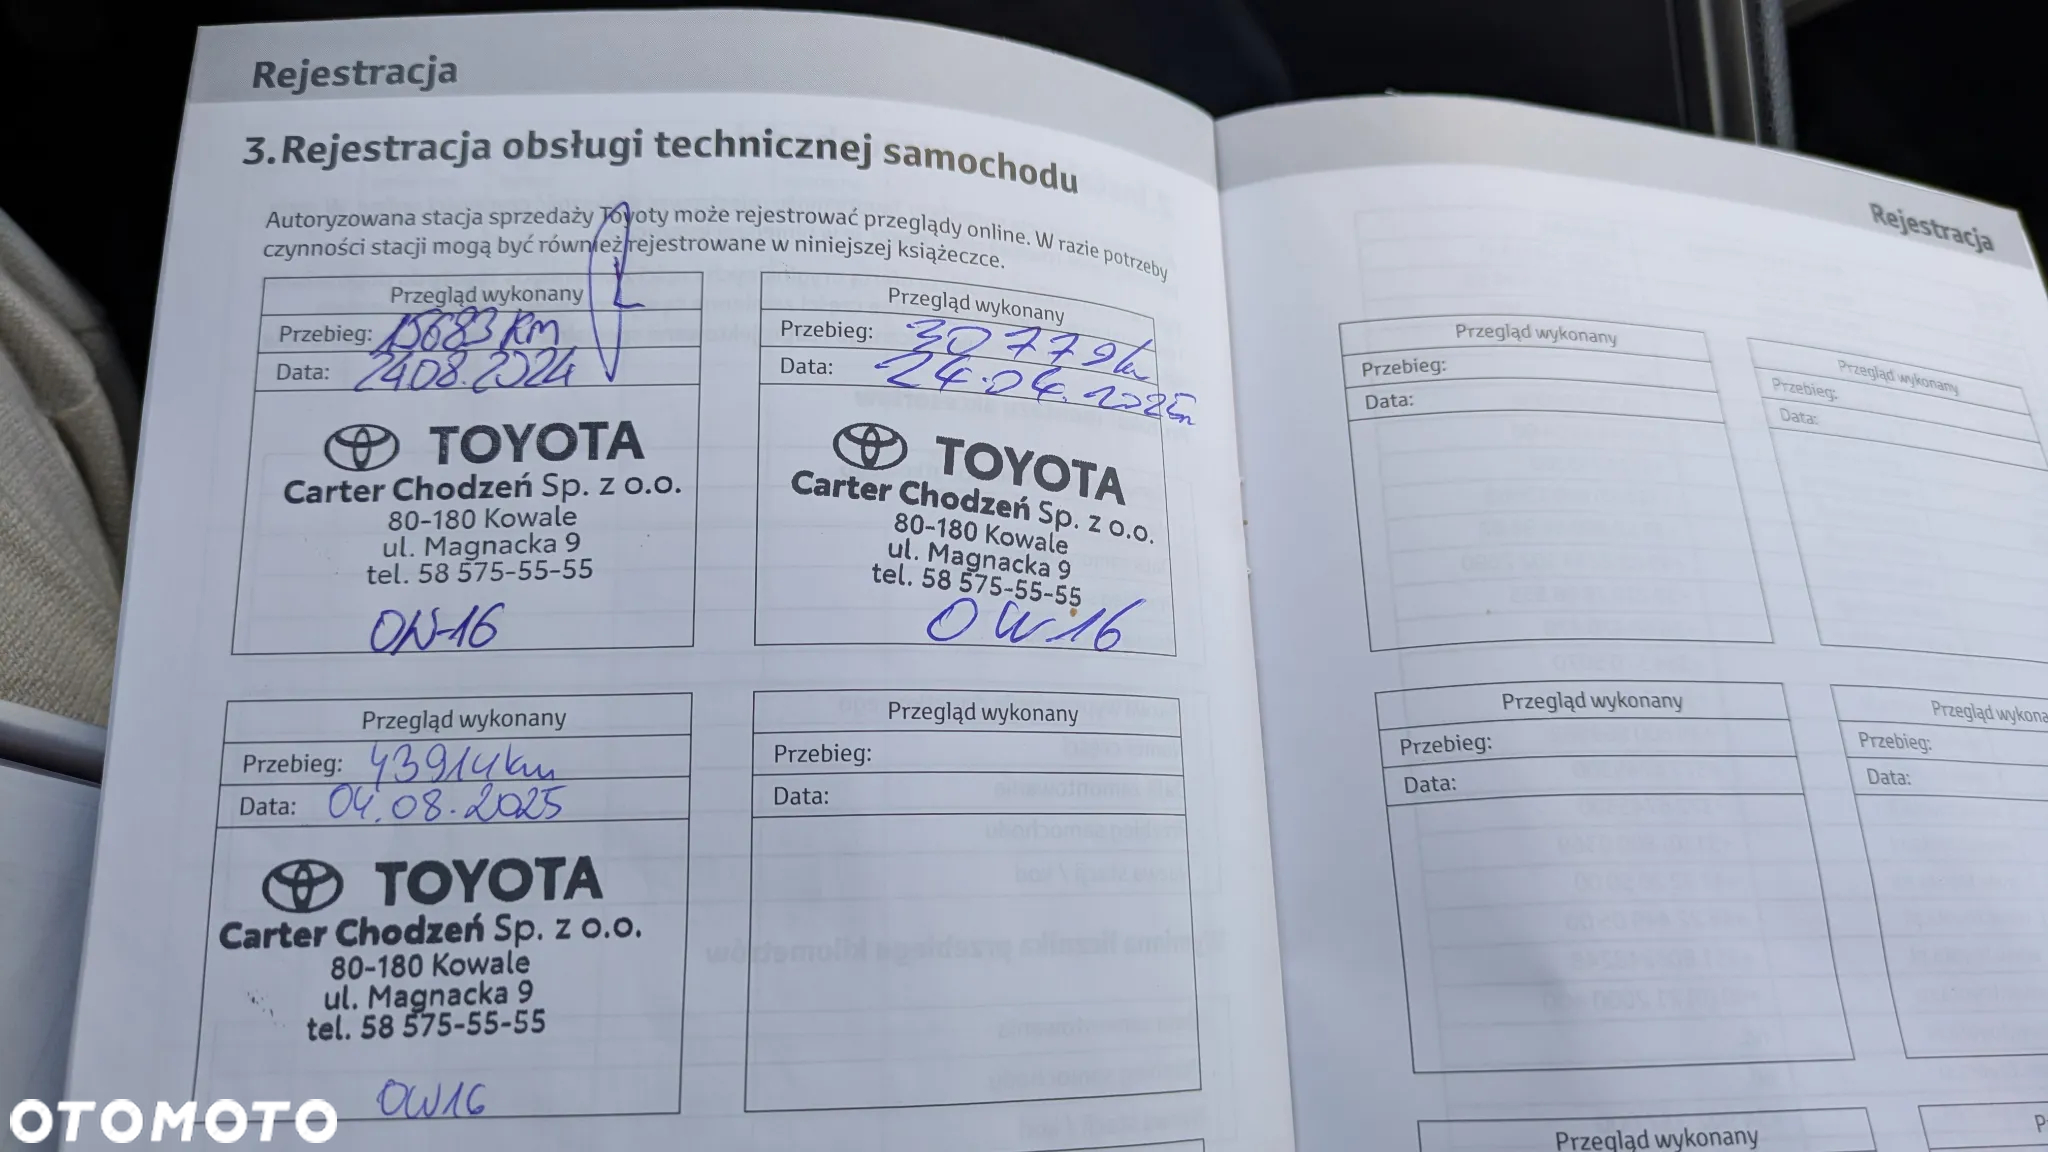 Rejestracja
3. Rejestracja obsługi technicznej samochodu
Autoryzowana stacja sprzedaży Toyoty może rejestrować przeglądy online. W razie potrzeby
czynności stacji mogą być również rejestrowane w niniejszej książeczce.
Przegląd wykonany
Przebieg: 15683 km
Data: 24.08.2024
TOYOTA
Carter Chodzeń Sp. z o.o.
80-180 Kowale
ul. Magnacka 9
tel. 58 575-55-55
OW-16
Przegląd wykonany
Przebieg: 30779 km
Data: 24.04.2025
TOYOTA
Carter Chodzeń Sp. z o.o.
80-180 Kowale
ul. Magnacka 9
tel. 58 575-55-55
OW-16
Przegląd wykonany
Przebieg: 43914 km
Data: 04.08.2025
TOYOTA
Carter Chodzeń Sp. z o.o.
80-180 Kowale
ul. Magnacka 9
tel. 58 575-55-55
OW16
Przegląd wykonany
Przebieg:
Data:
Rejestracja
Przegląd wykonany
Przebieg:
Data:
Przegląd wykonany
Przebieg:
Data:
Przegląd wykonany
Przebieg:
Data:
Przegląd wykona
Przebieg:
Data:
Przegląd wykonany
P
OTOMOTO